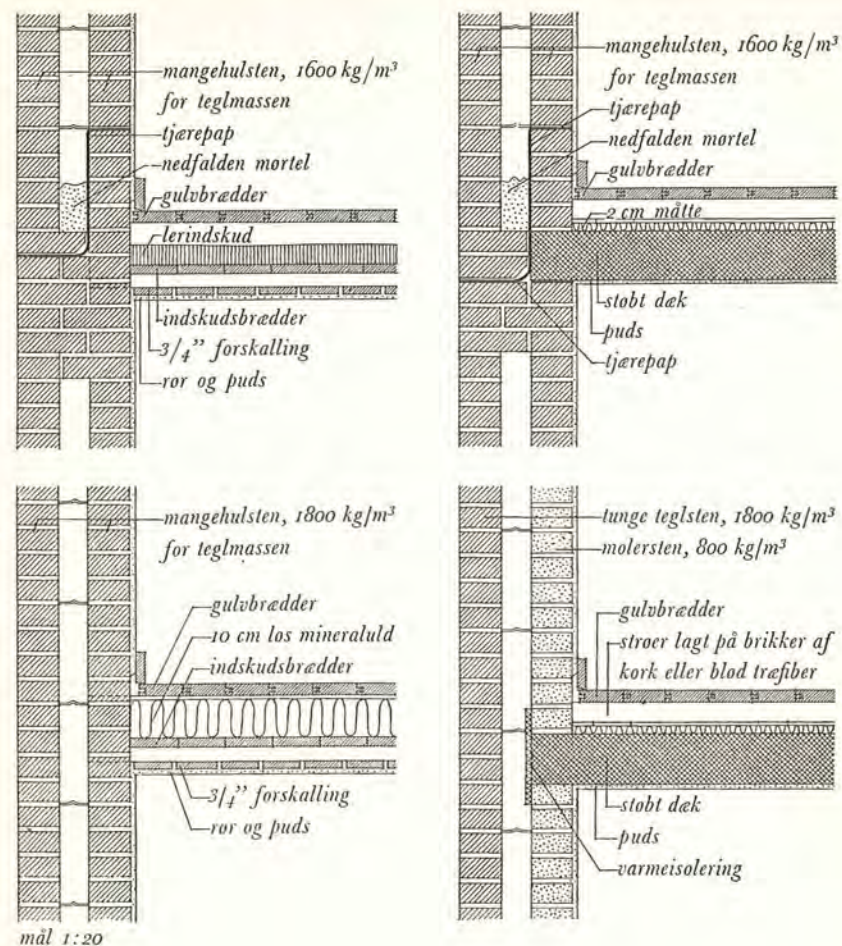 mangehulsten, 1600 kg/m³
for teglmassen
tjærepap
nedfalden mørtel
gulvbrædder
lerindskud
indskudsbrædder
3/4” forskalling
rør og puds
mangehulsten, 1600 kg/m³
for teglmassen
tjærepap
nedfalden mørtel
gulvbrædder
2 cm måtte
støbt dæk
puds
tjærepap
mangehulsten, 1800 kg/m³
for teglmassen
gulvbrædder
10 cm løs mineraluld
indskudsbrædder
3/4” forskalling
rør og puds
tunge teglsten, 1800 kg/m³
molersten, 800 kg/m³
gulvbrædder
strøer lagt på brikker af
kork eller blød træfiber
støbt dæk
puds
varmeisolering
mål 1:20